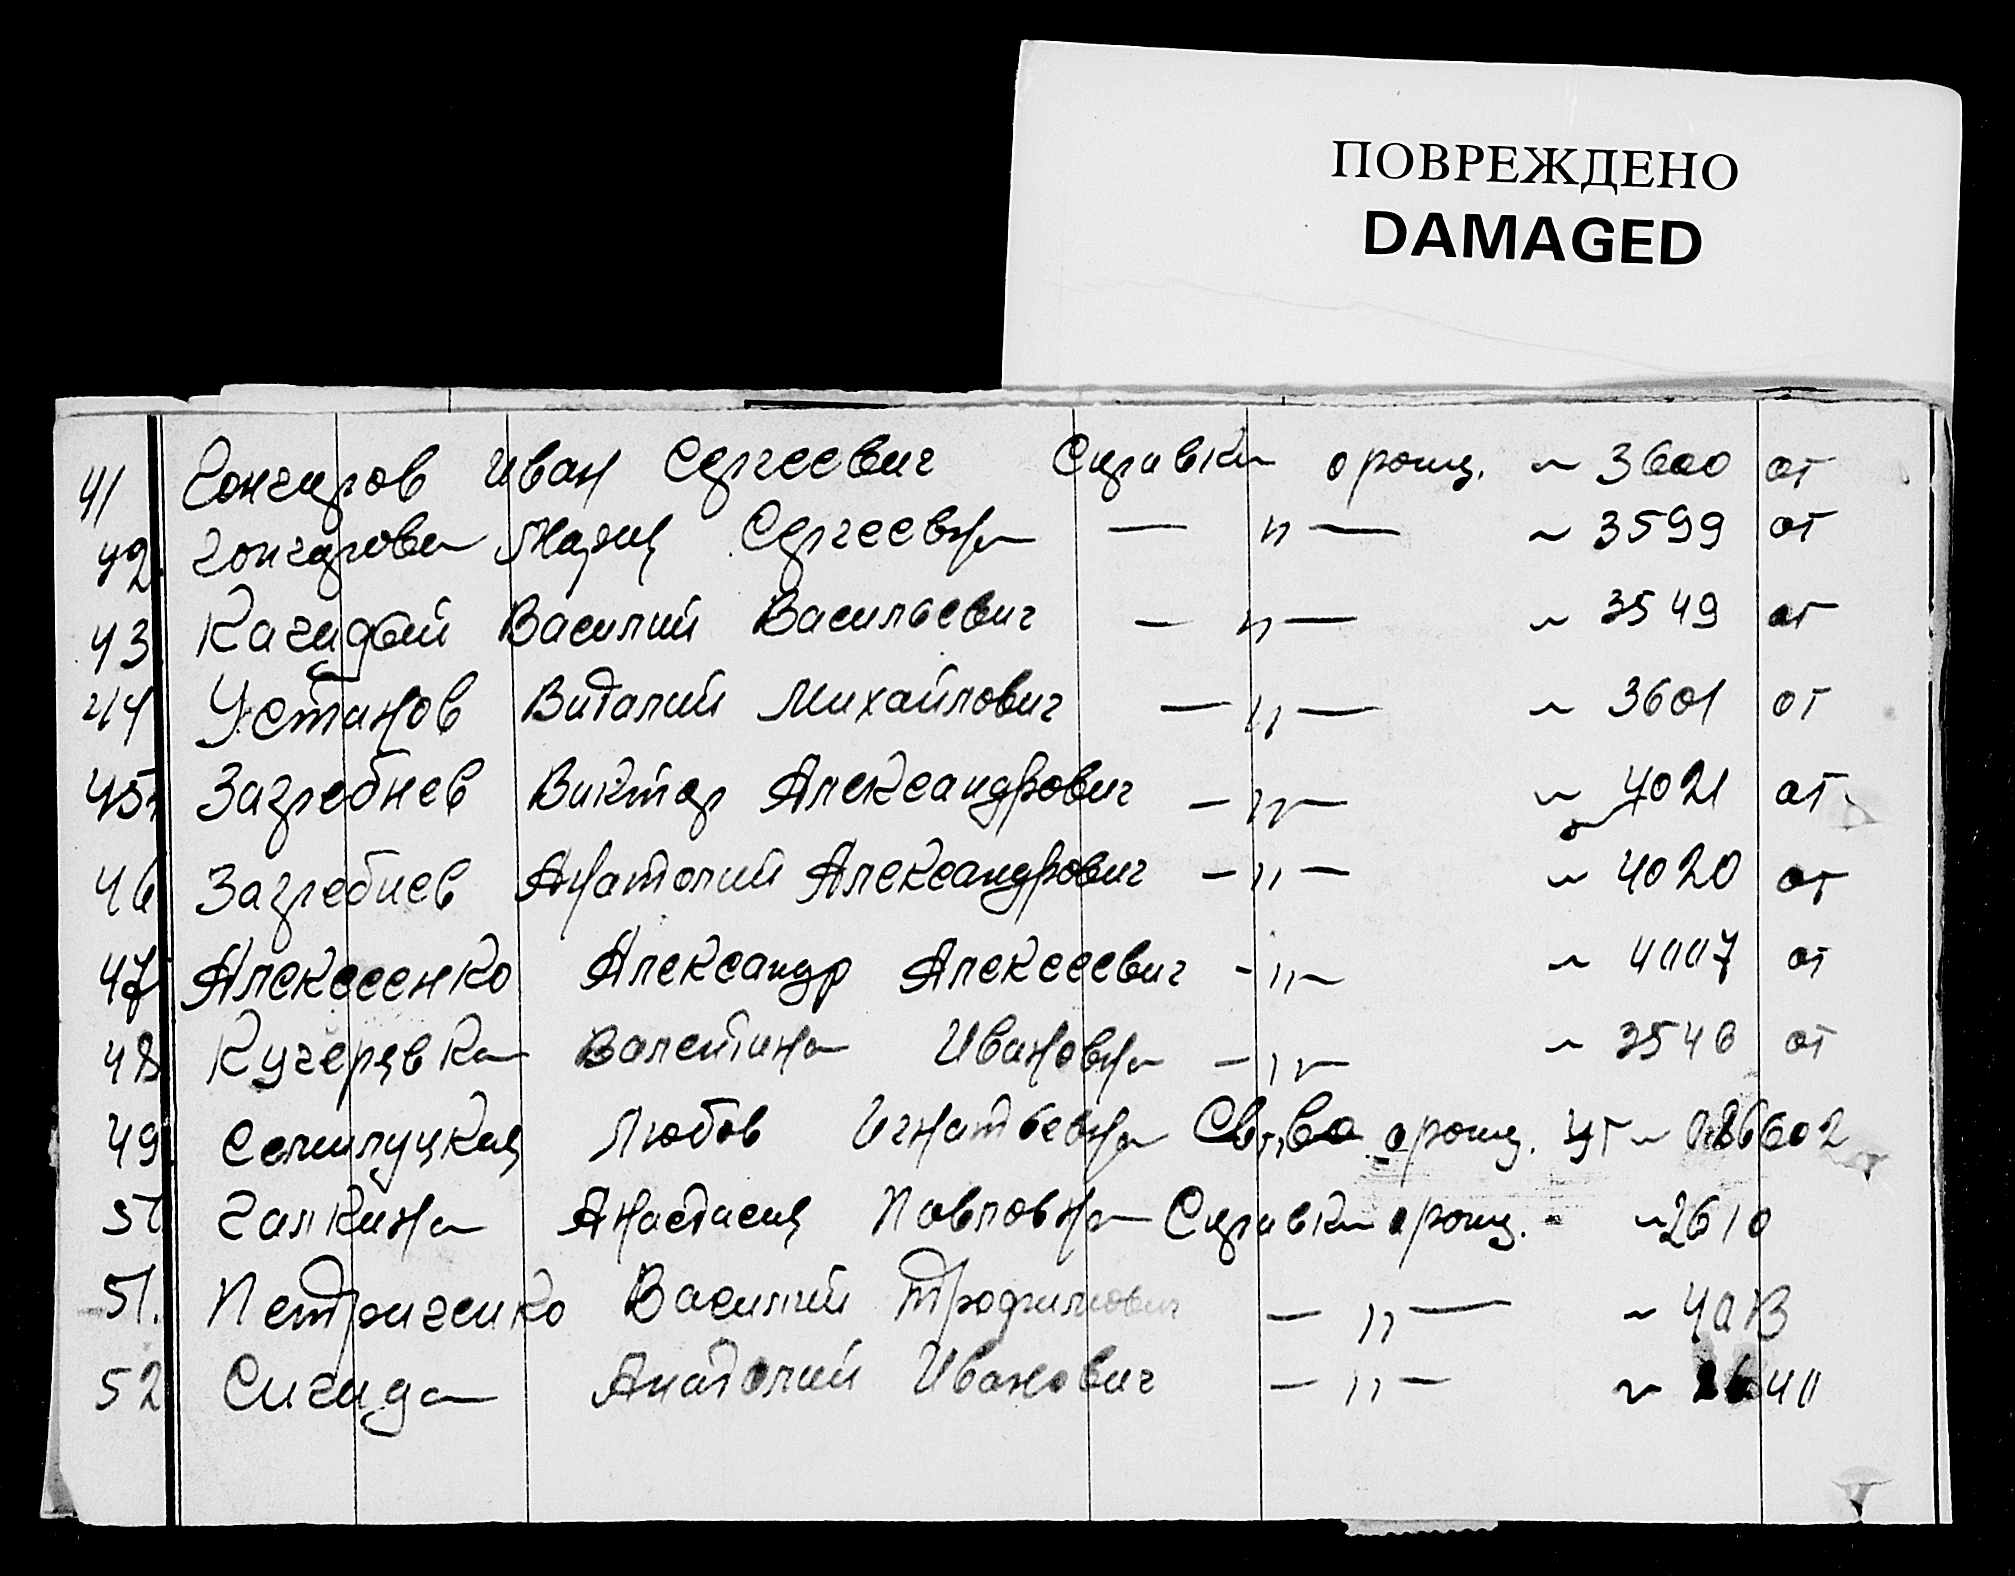 ПОВРЕЖДЕНО
DAMAGED
41 Гончаров Иван Сергеевич Справка о рожд. ~ 3600 от
42. Гончарова Мария Сергеевна — " — ~ 3599 от
43 Василий Васильевич — " — ~ 3549 от
44 Устинов Виталий Михайлович — " — ~ 3601 от
45. Загребнев Виктор Александрович — " — ~ 4021 от
46 Загребнев Анатолий Александрович — " — ~ 4020 от
47 Алексеенко Александр Алексеевич - " - ~ 4007 от
48 Кучерявка Валентина Ивановна - " - ~ 3546 от
49. Семилуцкая Любов Игнатьевна Св-во о рожд.
50 Галкина Анастасия Павловна Справка о рожд. ~ 2610
51. Петриченко Василий Трофимович — " — ~
52 Сигида Анатолий Иванович — " — ~